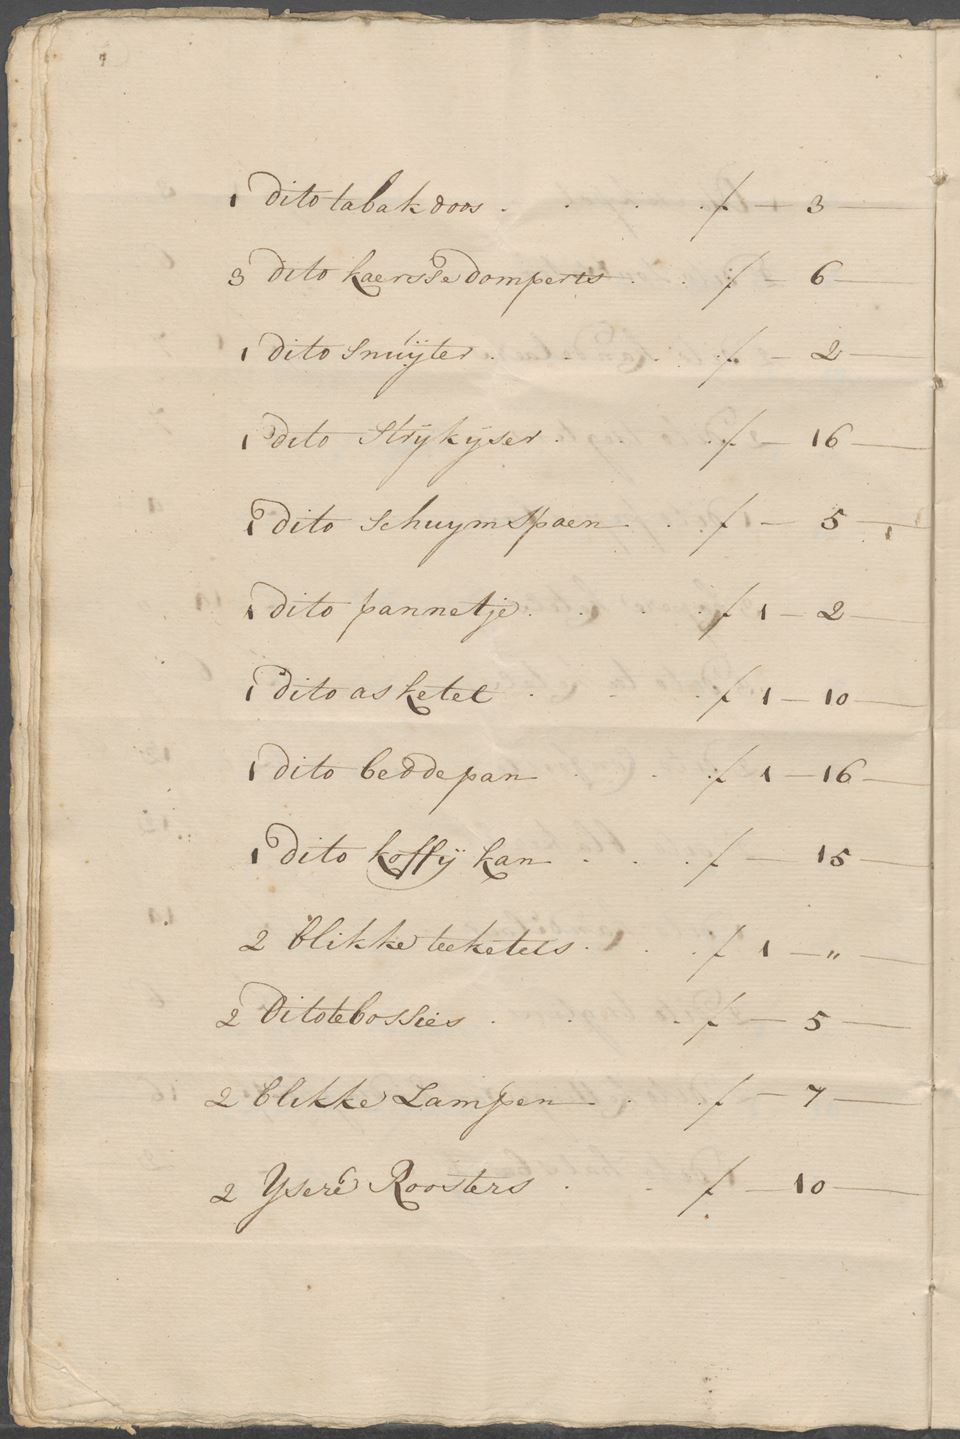 1 dito tabak doos . . . . f — 3 —
3 dito kaersse domperts . . f — 6 —
1 dito Snuÿter . . . f — 2 —
1 dito Strÿkÿser . . f — 16 —
1 dito Schuym Spaen . . f — 5 —
1 dito pannetje . . . f 1 — 2 —
1 dito as ketel . . . f 1 — 10 —
1 dito beddepan . . . f 1 — 16 —
1 dito koffÿ kan . . . f — 15 —
2 blikke teeketels . . . f 1 — „ —
2 Dito tebossies . . . f — 5 —
2 blikke Lampen . . f — 7 —
2 Ysere Roosters . . f — 10 —